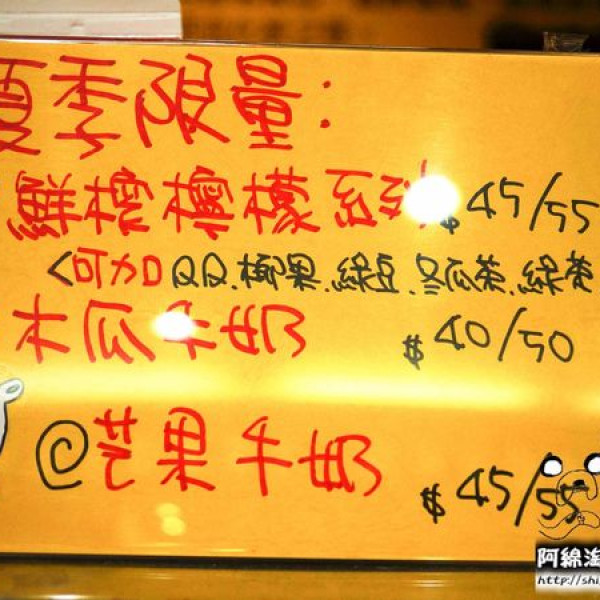 夏季限量:
鮮榨檸檬系列 $45/55
<可加QQ.椰果.綠豆.冬瓜茶.綠茶
木瓜牛奶 $40/50
@芒果牛奶 $45/55
阿綿
http://shi